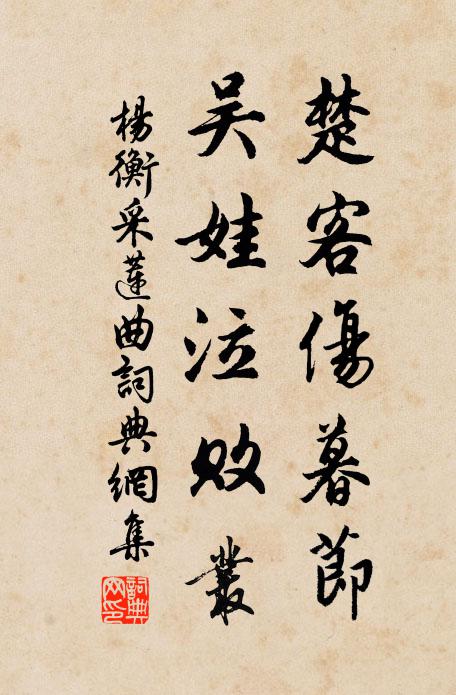 楚客傷暮節
吳娃泣敗叢
楊衡采蓮曲詞典網集
詞典
网印